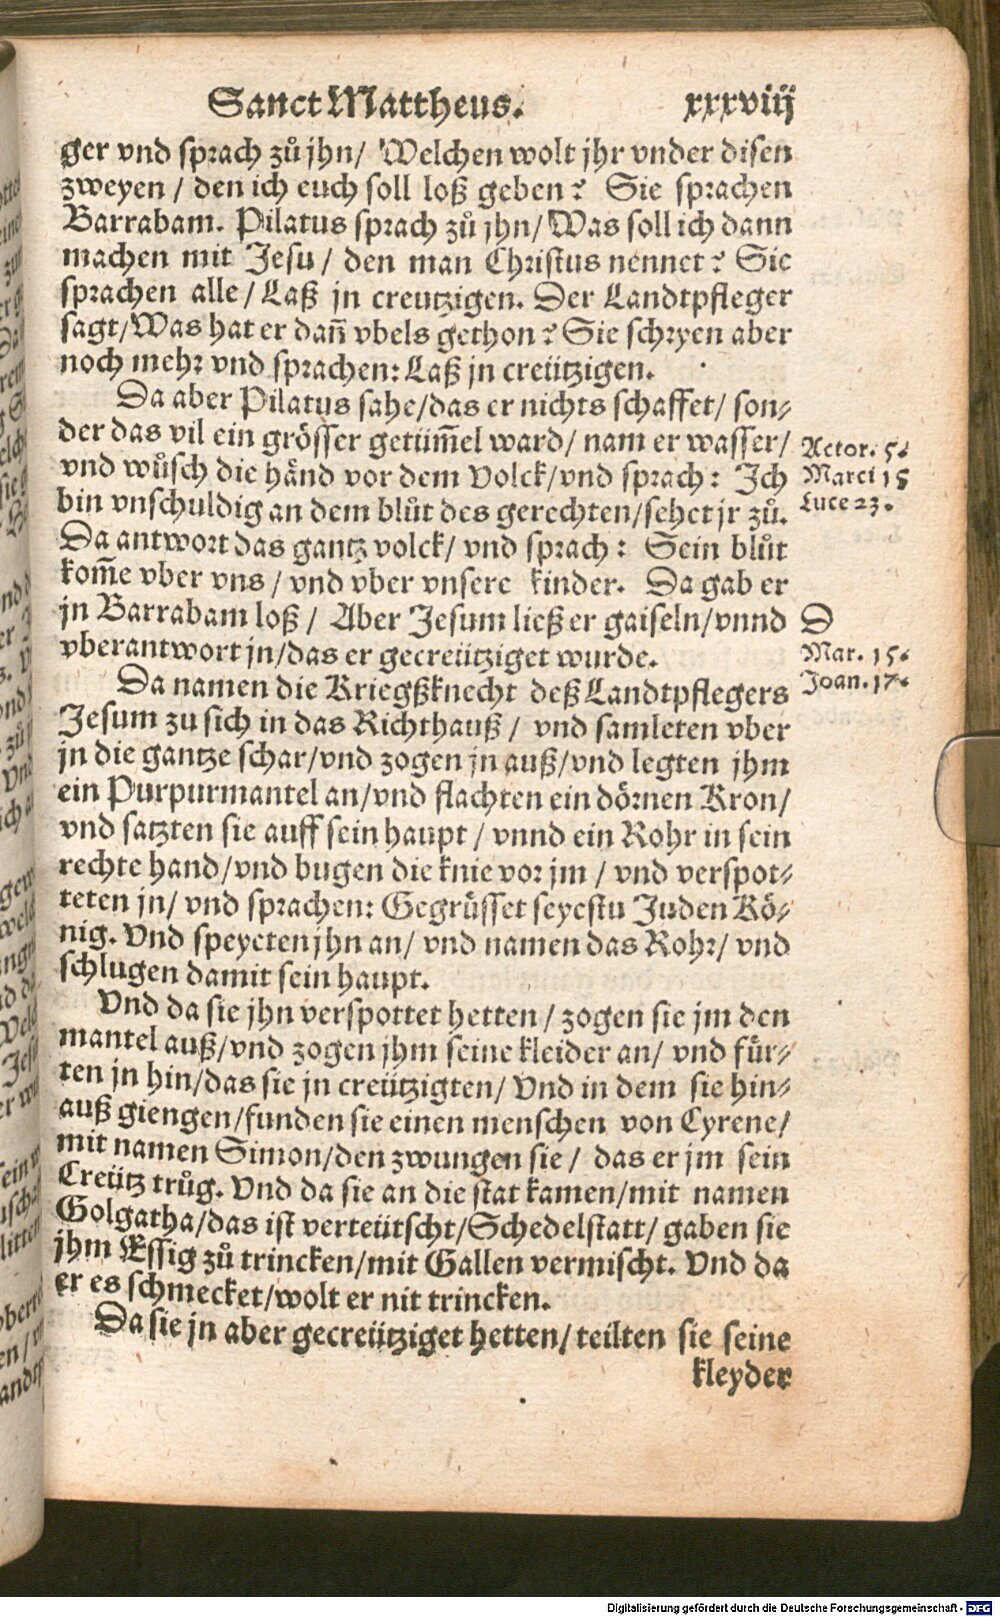 Sanct Mattheus. xxxviij
ger vnd sprach zů jhn/ Welchen wolt jhr vnder disen
zweyen / den ich euch soll loß geben? Sie sprachen
Barrabam. Pilatus sprach zů jhn/ Was soll ich dann
machen mit Jesu / den man Christus nennet? Sie
sprachen alle / Laß jn creutzigen. Der Landtpfleger
sagt/ Was hat er dañ vbels gethon? Sie schryen aber
noch mehr vnd sprachen: Laß jn creützigen.
Da aber Pilatus sahe/das er nichts schaffet/ son⸗
der das vil ein grösser getüm̃el ward/ nam er wasser/
vnd wůsch die händ vor dem Volck/vnd sprach: Ich
bin vnschuldig an dem blůt des gerechten/sehet jr zů.
Da antwort das gantz volck/ vnd sprach: Sein blůt
kom̃e vber vns / vnd vber vnsere kinder. Da gab er
jn Barrabam loß / Aber Jesum ließ er gaiseln/vnnd
vberantwort jn/das er gecreütziget wurde.
Actor. 5.
Marci 15
Luce 23.
D
Mar. 15.
Joan. 17.
Da namen die Kriegßknecht deß Landtpflegers
Jesum zu sich in das Richthauß / vnd samleten vber
jn die gantze schar/vnd zogen jn auß/vnd legten jhm
ein Purpurmantel an/vnd flachten ein dörnen Kron/
vnd satzten sie auff sein haupt / vnnd ein Rohr in sein
rechte hand/vnd bugen die knie vor jm / vnd verspot⸗
teten jn/ vnd sprachen: Gegrüsset seyestu Juden Kö⸗
nig. Vnd speyeten jhn an/ vnd namen das Rohr/ vnd
schlugen damit sein haupt.
Vnd da sie jhn verspottet hetten / zogen sie jm den
mantel auß/vnd zogen jhm seine kleider an/ vnd für⸗
ten jn hin/das sie jn creützigten/ Vnd in dem sie hin⸗
auß giengen/funden sie einen menschen von Cyrene/
mit namen Simon/den zwungen sie / das er jm sein
Creütz trůg. Vnd da sie an die stat kamen/mit namen
Golgatha/das ist verteütscht/Schedelstatt/ gaben sie
jhm Essig zů trincken/mit Gallen vermischt. Vnd da
er es schmecket/wolt er nit trincken.
Da sie jn aber gecreütziget hetten/ teilten sie seine
kleyder
Digitalisierung gefördert durch die Deutsche Forschungsgemeinschaft - DFG